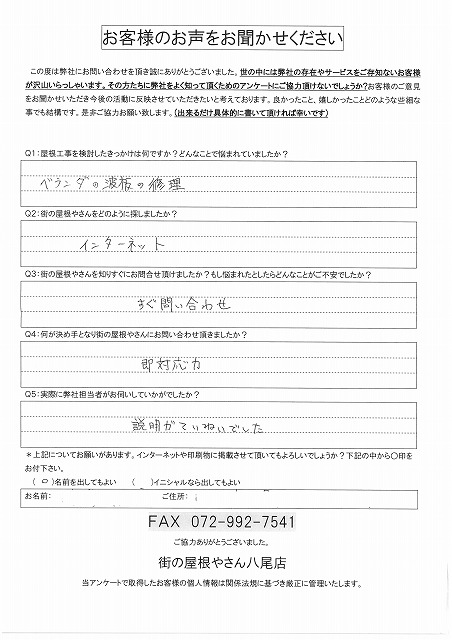 お客様のお声をお聞かせください
この度は弊社にお問い合わせを頂き誠にありがとうございました。世の中には弊社の存在やサービスをご存知ないお客様
が沢山いらっしゃいます。その方たちに弊社をよく知って頂くためのアンケートにご協力頂けないでしょうか?お客様のご意見
をお聞かせいただき今後の活動に反映させていただきたいと考えております。良かったこと、嬉しかったことどのような些細な
事でも結構です。是非ご協力お願い致します。(出来るだけ具体的に書いて頂ければ幸いです)
Q1:屋根工事を検討したきっかけは何ですか?どんなことで悩まれていましたか?
ベランダの波板の修理
Q2:街の屋根やさんをどのように探しましたか?
インターネット
Q3:街の屋根やさんを知りすぐにお問合せ頂けましたか?もし悩まれたとしたらどんなことがご不安でしたか?
すぐ問い合わせ
Q4:何が決め手となり街の屋根やさんにお問い合わせ頂きましたか?
即対応力
Q5:実際に弊社担当者がお伺いしていかがでしたか?
説明がていねいでした
*上記についてお願いがあります。インターネットや印刷物に掲載させて頂いてもよろしいでしょうか?下記の中から〇印を
お付下さい。
(○)名前を出してもよい ( )イニシャルなら出してもよい
お名前: ご住所:
FAX 072-992-7541
ご協力ありがとうございました。
街の屋根やさん八尾店
当アンケートで取得したお客様の個人情報は関係法規に基づき厳正に管理いたします。